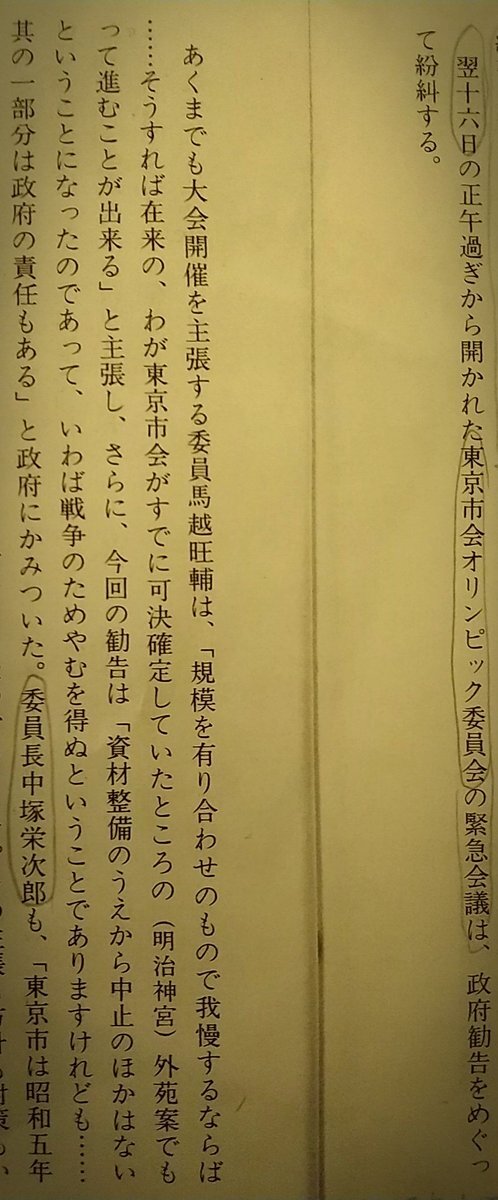 翌十六日の正午過ぎから開かれた東京市会オリンピック委員会の緊急会議は、政府勧告をめぐっ
て紛糾する。
あくまでも大会開催を主張する委員馬越旺輔は、「規模を有り合わせのもので我慢するならば
……そうすれば在来の、わが東京市会がすでに可決確定していたところの（明治神宮）外苑案でも
って進むことが出来る」と主張し、さらに、今回の勧告は「資材整備のうえから中止のほかはない
ということになったのであって、いわば戦争のためやむを得ぬということでありますけれども……
其の一部分は政府の責任もある」と政府にかみついた。委員長中塚栄次郎も、「東京市は昭和五年